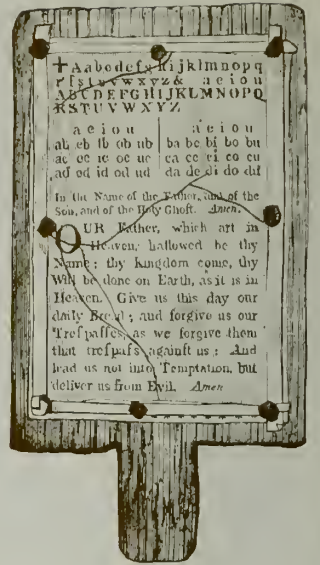 +Aabcdefghijklmnopq
rſstuvwxyz& aeiou
ABCDEFGHIJKLMNOPQ
RSTUVWXYZ
a e i o u   a e i o u
ab eb ib ob ub   ba be bi bo bu
ac ec ic oc uc   ca ce ci co cu
ad ed id od ud   da de di do du
In the Name of the Father, and of the
Son, and of the Holy Ghoſt. Amen.
OUR Father, which art in
Heaven, hallowed be thy
Name; thy Kingdom come, thy
Will be done on Earth, as it is in
Heaven. Give us this day our
daily Bread; and forgive us our
Treſpaſſes, as we forgive them
that treſpaſs againſt us: And
lead us not into Temptation, but
deliver us from Evil. Amen